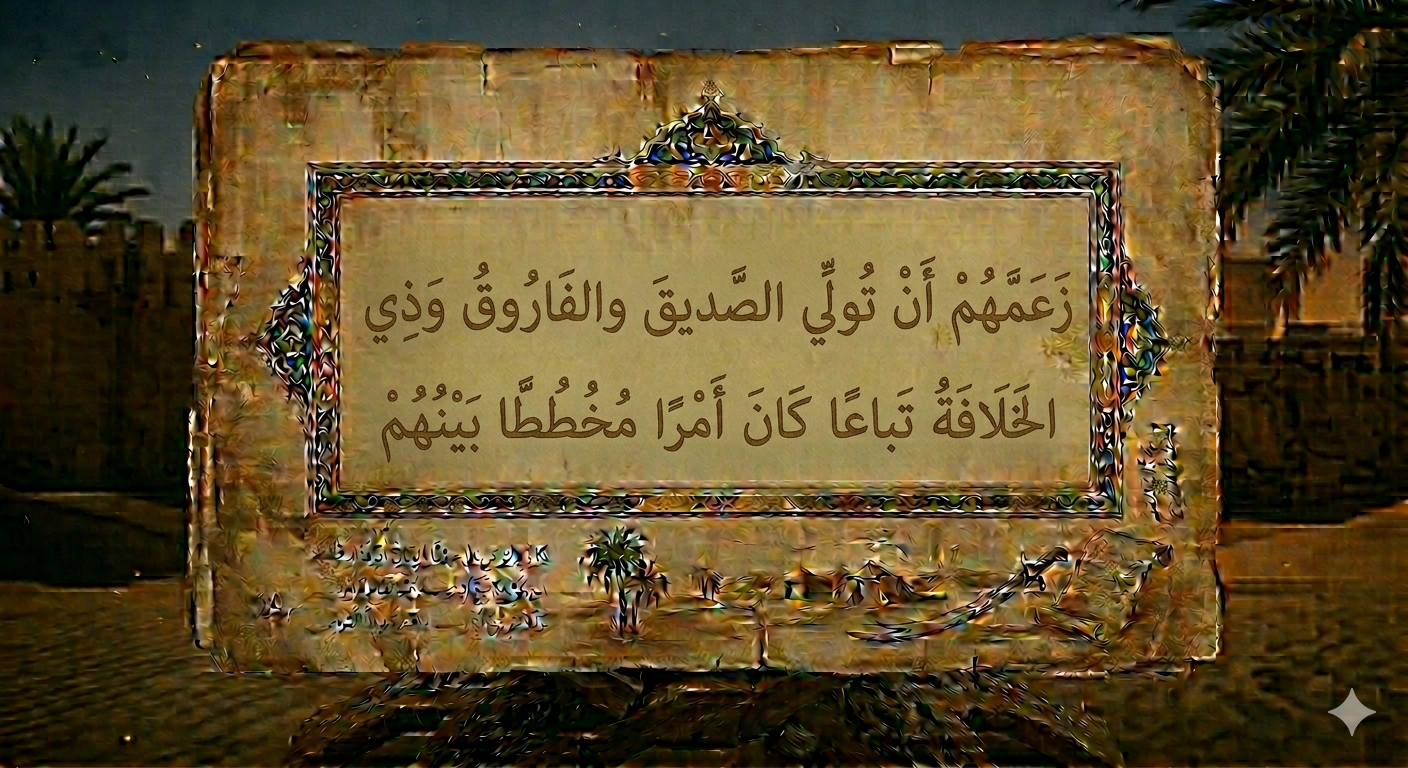 زَعَمَّهُمْ أَنْ تُولِّي الصَّديقَ والفَارُوقُ وَذِي
الخَلَافَةُ تَباعًا كَانَ أَمْرًا مُخُطُطًّا بَيْنُهُمْ